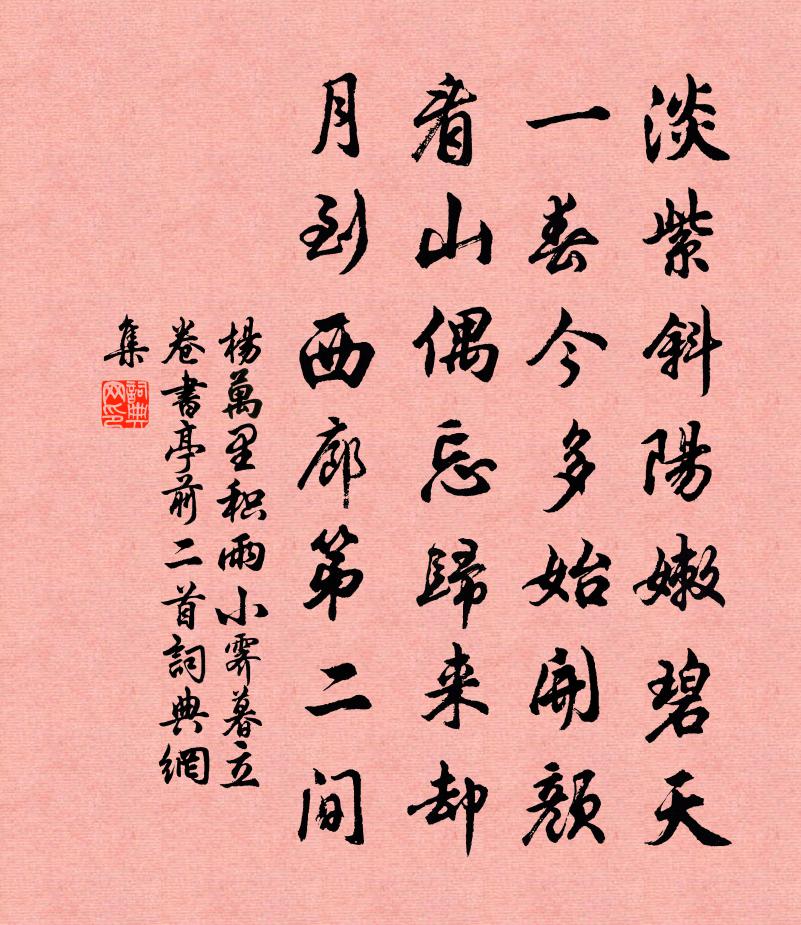 淡紫斜陽嫩碧天
一春今多始開顏
看山偶忘歸来却
月到西廊第二间
楊萬里积雨小霽暮立
卷書亭前二首詞典網
集
詞典網印